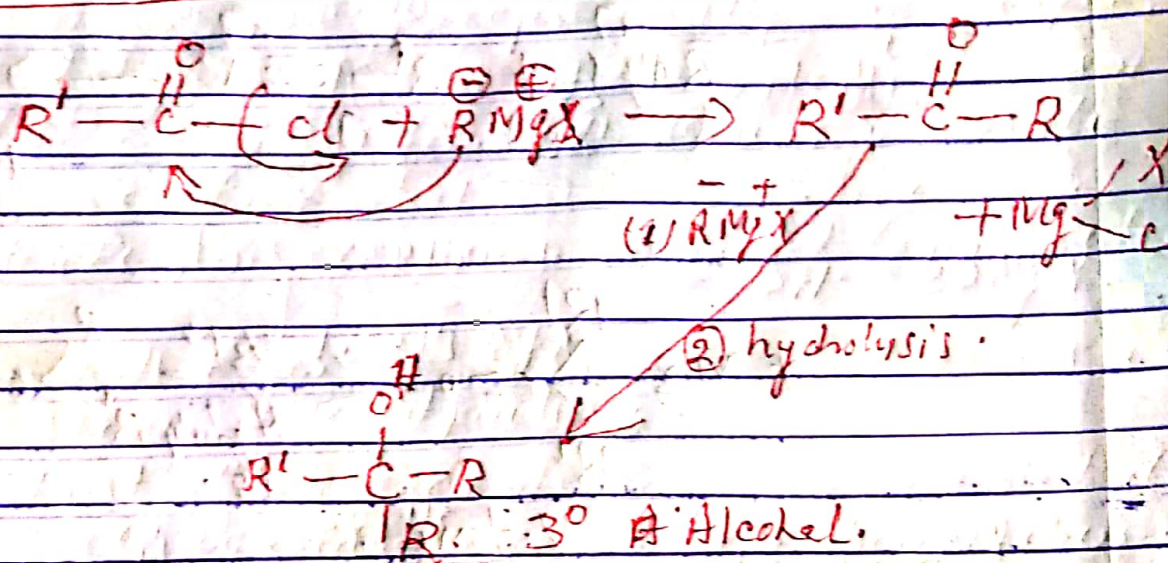 O O
|| ||
R' — C — Cl + R⊖ MgX⊕ → R' — C — R
(1) R⁻Mg⁺X + Mg X
② hydrolysis.
OH
|
R' — C — R
| R 3° Alcohol.